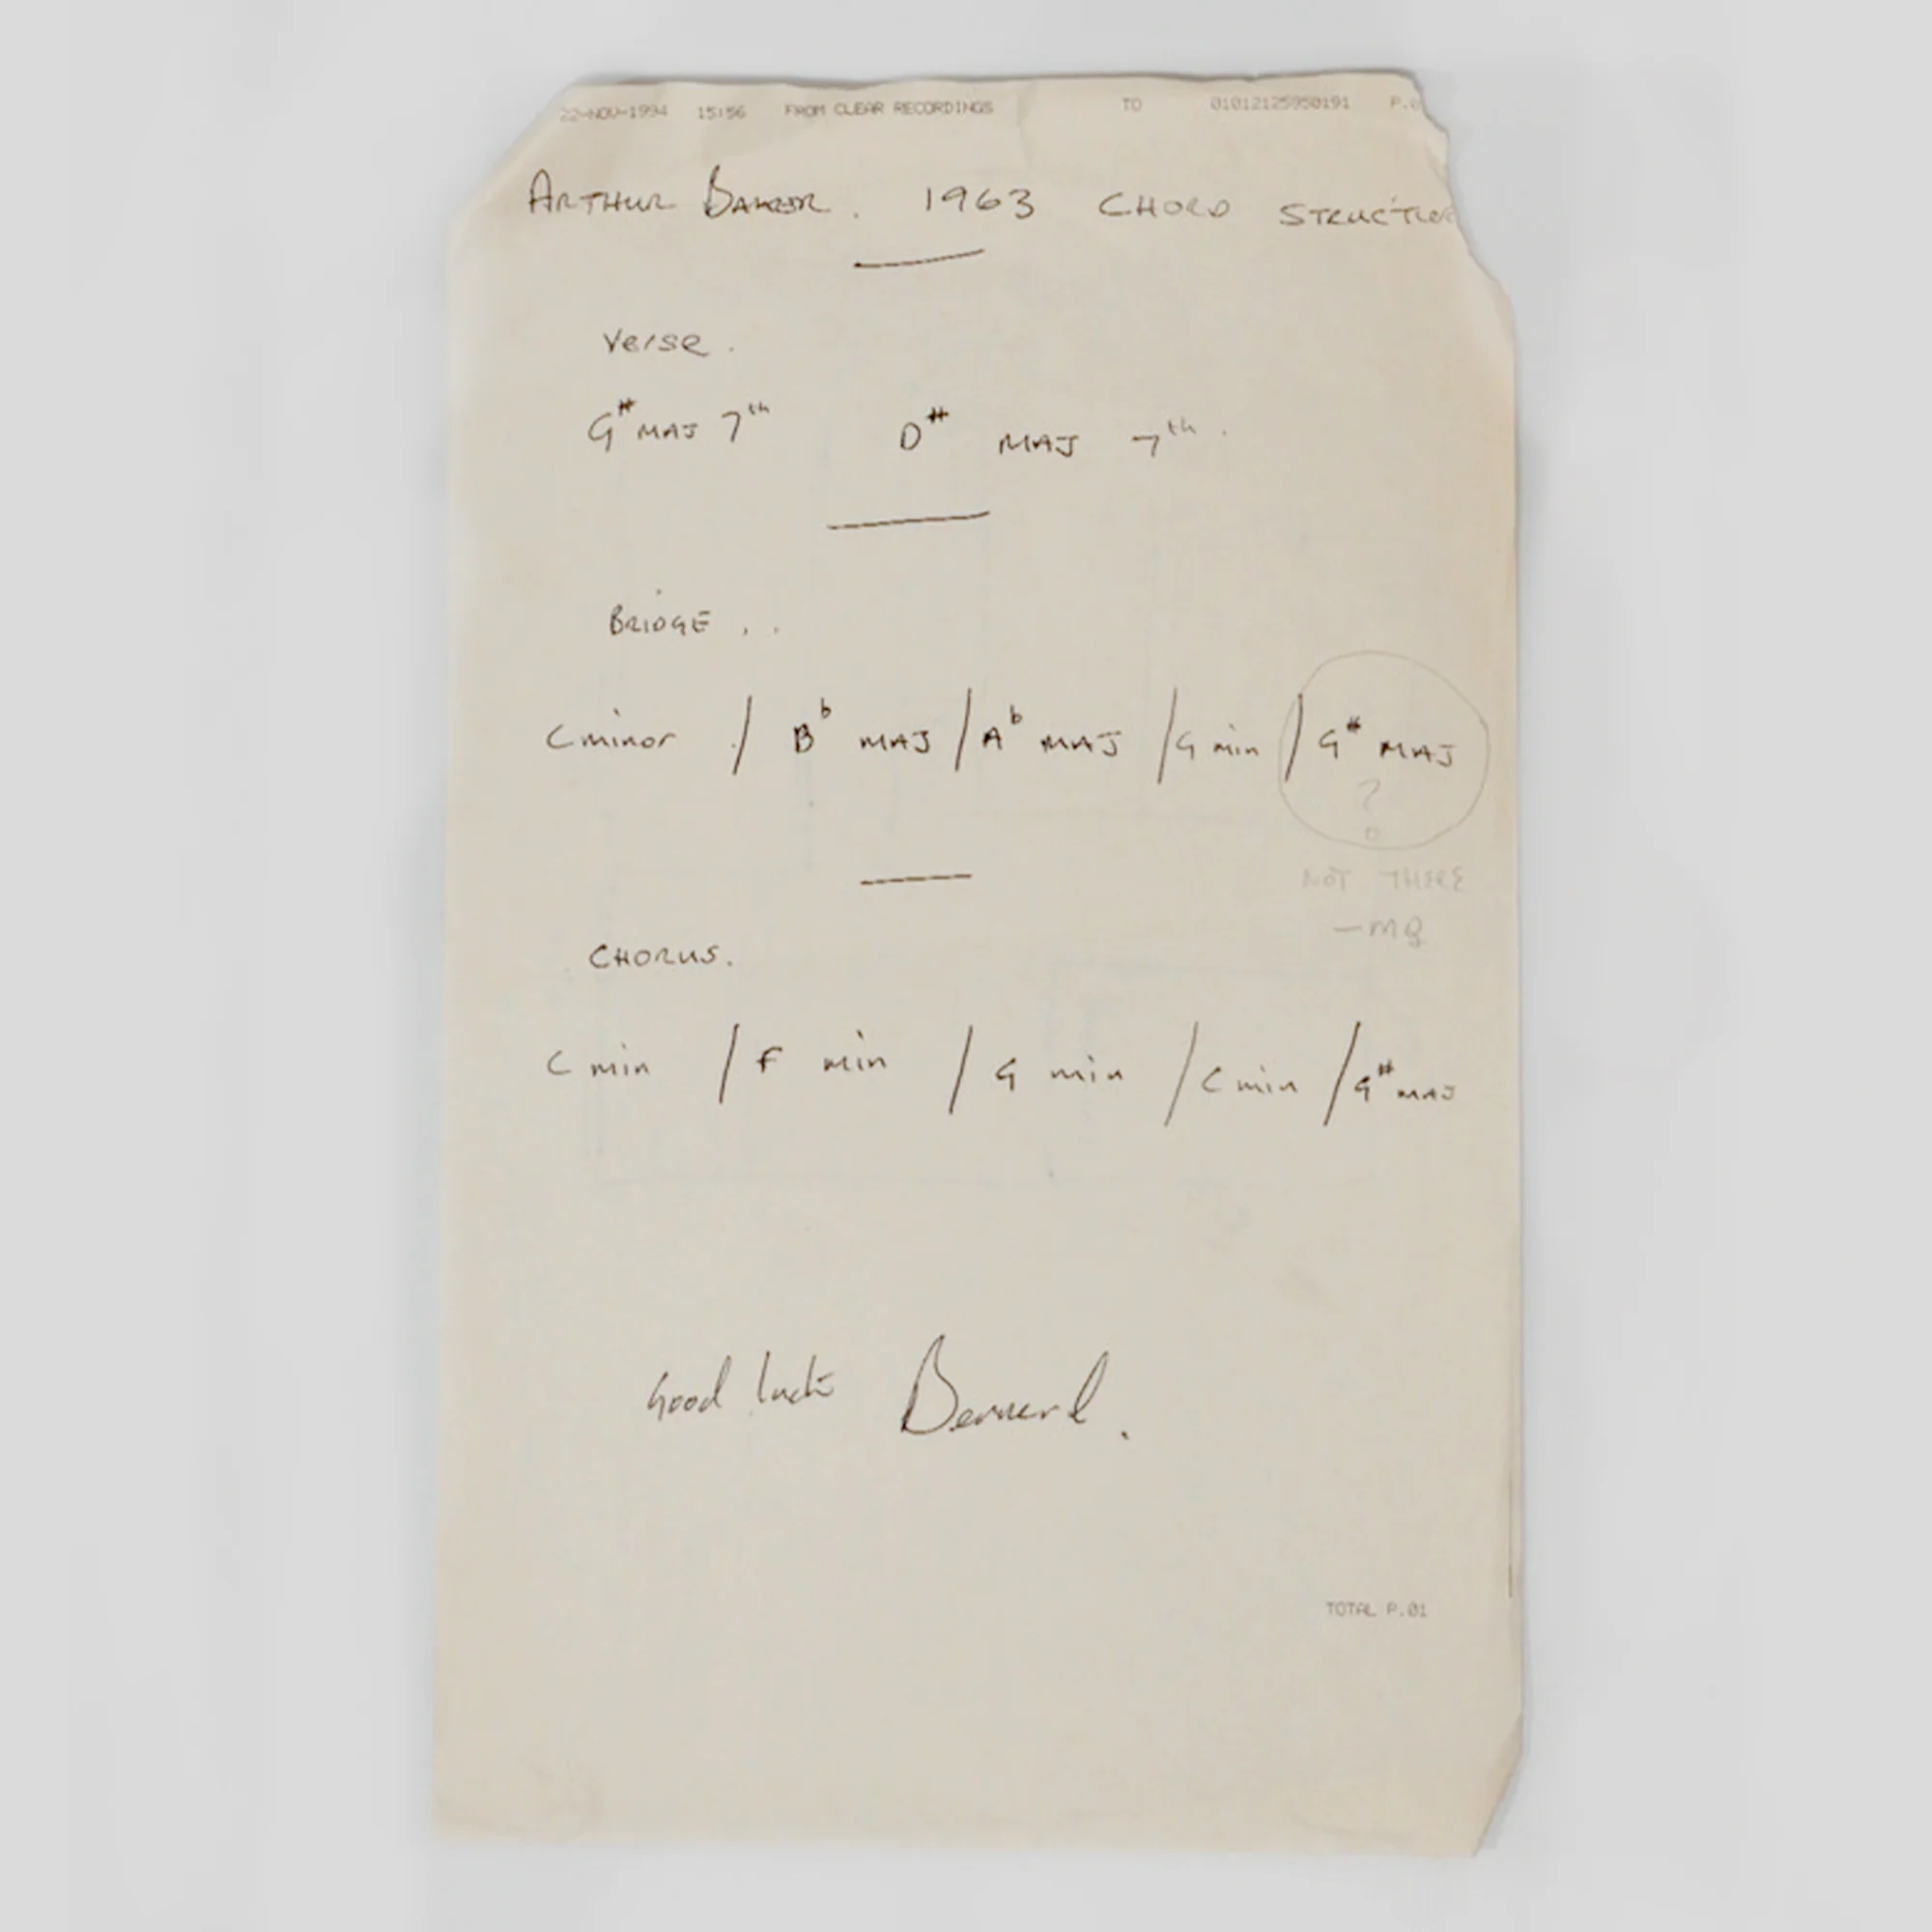 22-NOV-1994 15:56 FROM CLEAR RECORDINGS TO 01012125950191 P.0
ARTHUR BAKER. 1963 CHORD STRUCTURE
Verse.
G# MAJ 7th D# MAJ 7th.
BRIDGE . .
C minor / Bb MAJ / Ab MAJ / G min / G# MAJ
?
NOT THERE
- MQ
CHORUS.
C min / F min / G min / C min / G# MAJ
Good luck Bernard.
TOTAL P.01